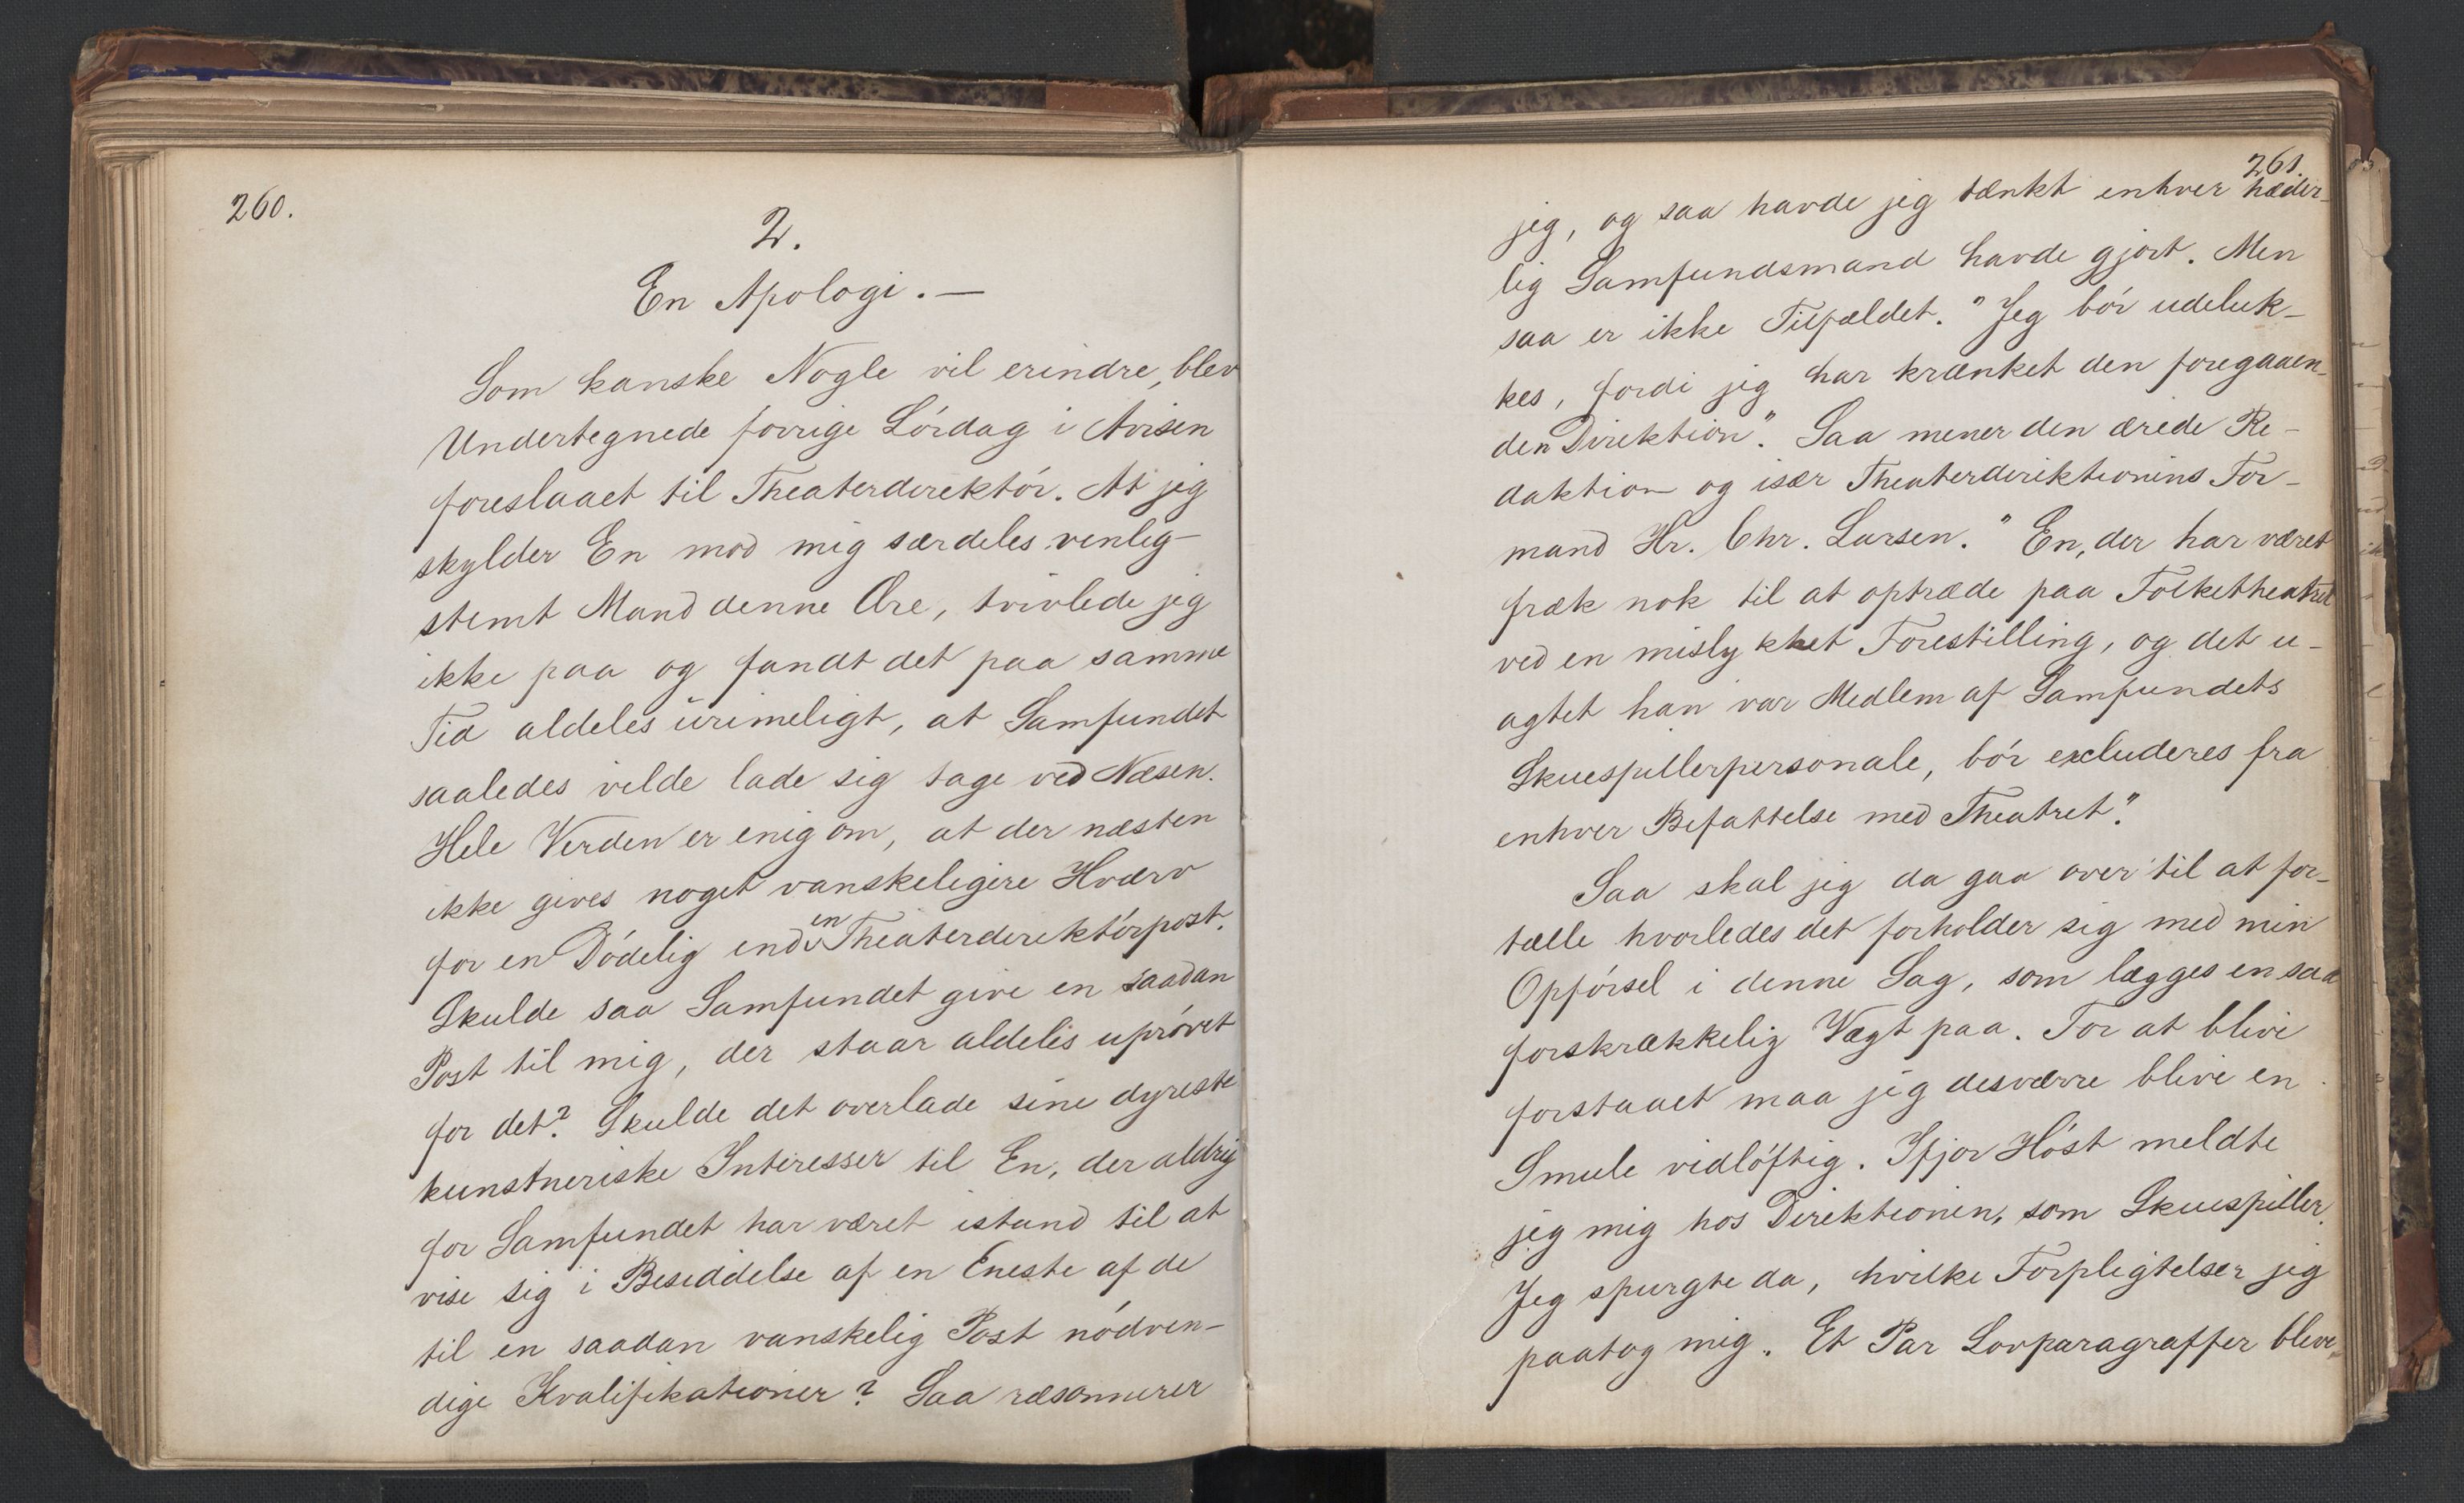 260.
2.
En Apologi. —
Som kanske Nogle vil erindre, blev
Undertegnede forrige Lórdag i Avisen
foreslaaet til Theaterdirektór. At jeg
skylder En mod mig særdeles venlig-
stemt Mand denne Ære, tvivlede jeg
ikke paa og fandt det paa samme
Tid aldeles urimeligt, at Samfundet
saaledes vilde lade sig tage ved Næsen.
Hele Verden er enig om, at der næsten
ikke gives noget vanskeligere Hværv
for en Dódelig end en Theaterdirektórpost.
Skulde saa Samfundet give en saadan
Post til mig, der staar aldeles upróvet
for det? Skulde det overlade sine dyreste
kunstneriske Interesser til En, der aldrig
for Samfundet har været istand til at
vise sig i Besiddelse af en Eneste af de
til en saadan vanskelig Post nódven-
dige Kvalifikationer? Saa ræsonnerer
261.
jeg, og saa havde jeg tænkt enhver hæder-
lig Samfundsmand havde gjort. Men
saa er ikke Tilfældet. "Jeg bór udeluk-
kes, fordi jeg har krænket den foregaaen-
den Direktion". Saa mener den ærede Re-
daktion og især Theaterdirektionens For-
mand Hr. Chr. Larsen. "En, der har været
fræk nok til at optræde paa Folketheatret
ved en mislykket Forestilling, og det u-
agtet han var Medlem af Samfundets
Skuespillerpersonale, bór excluderes fra
enhver Befattelse med Theatret".
Saa skal jeg da gaa over til at for-
tælle hvorledes det forholder sig med min
Opfórsel i denne Sag, som lægges en saa
forskrækkelig Vægt paa. For at blive
forstaaet maa jeg desværre blive en
Smule vidlóftig. Ifjor Hóst meldte
jeg mig hos Direktionen, som Skuespiller.
Jeg spurgte da, hvilke Forpligtelser jeg
paatog mig. Et Par Lovparagraffer bleve